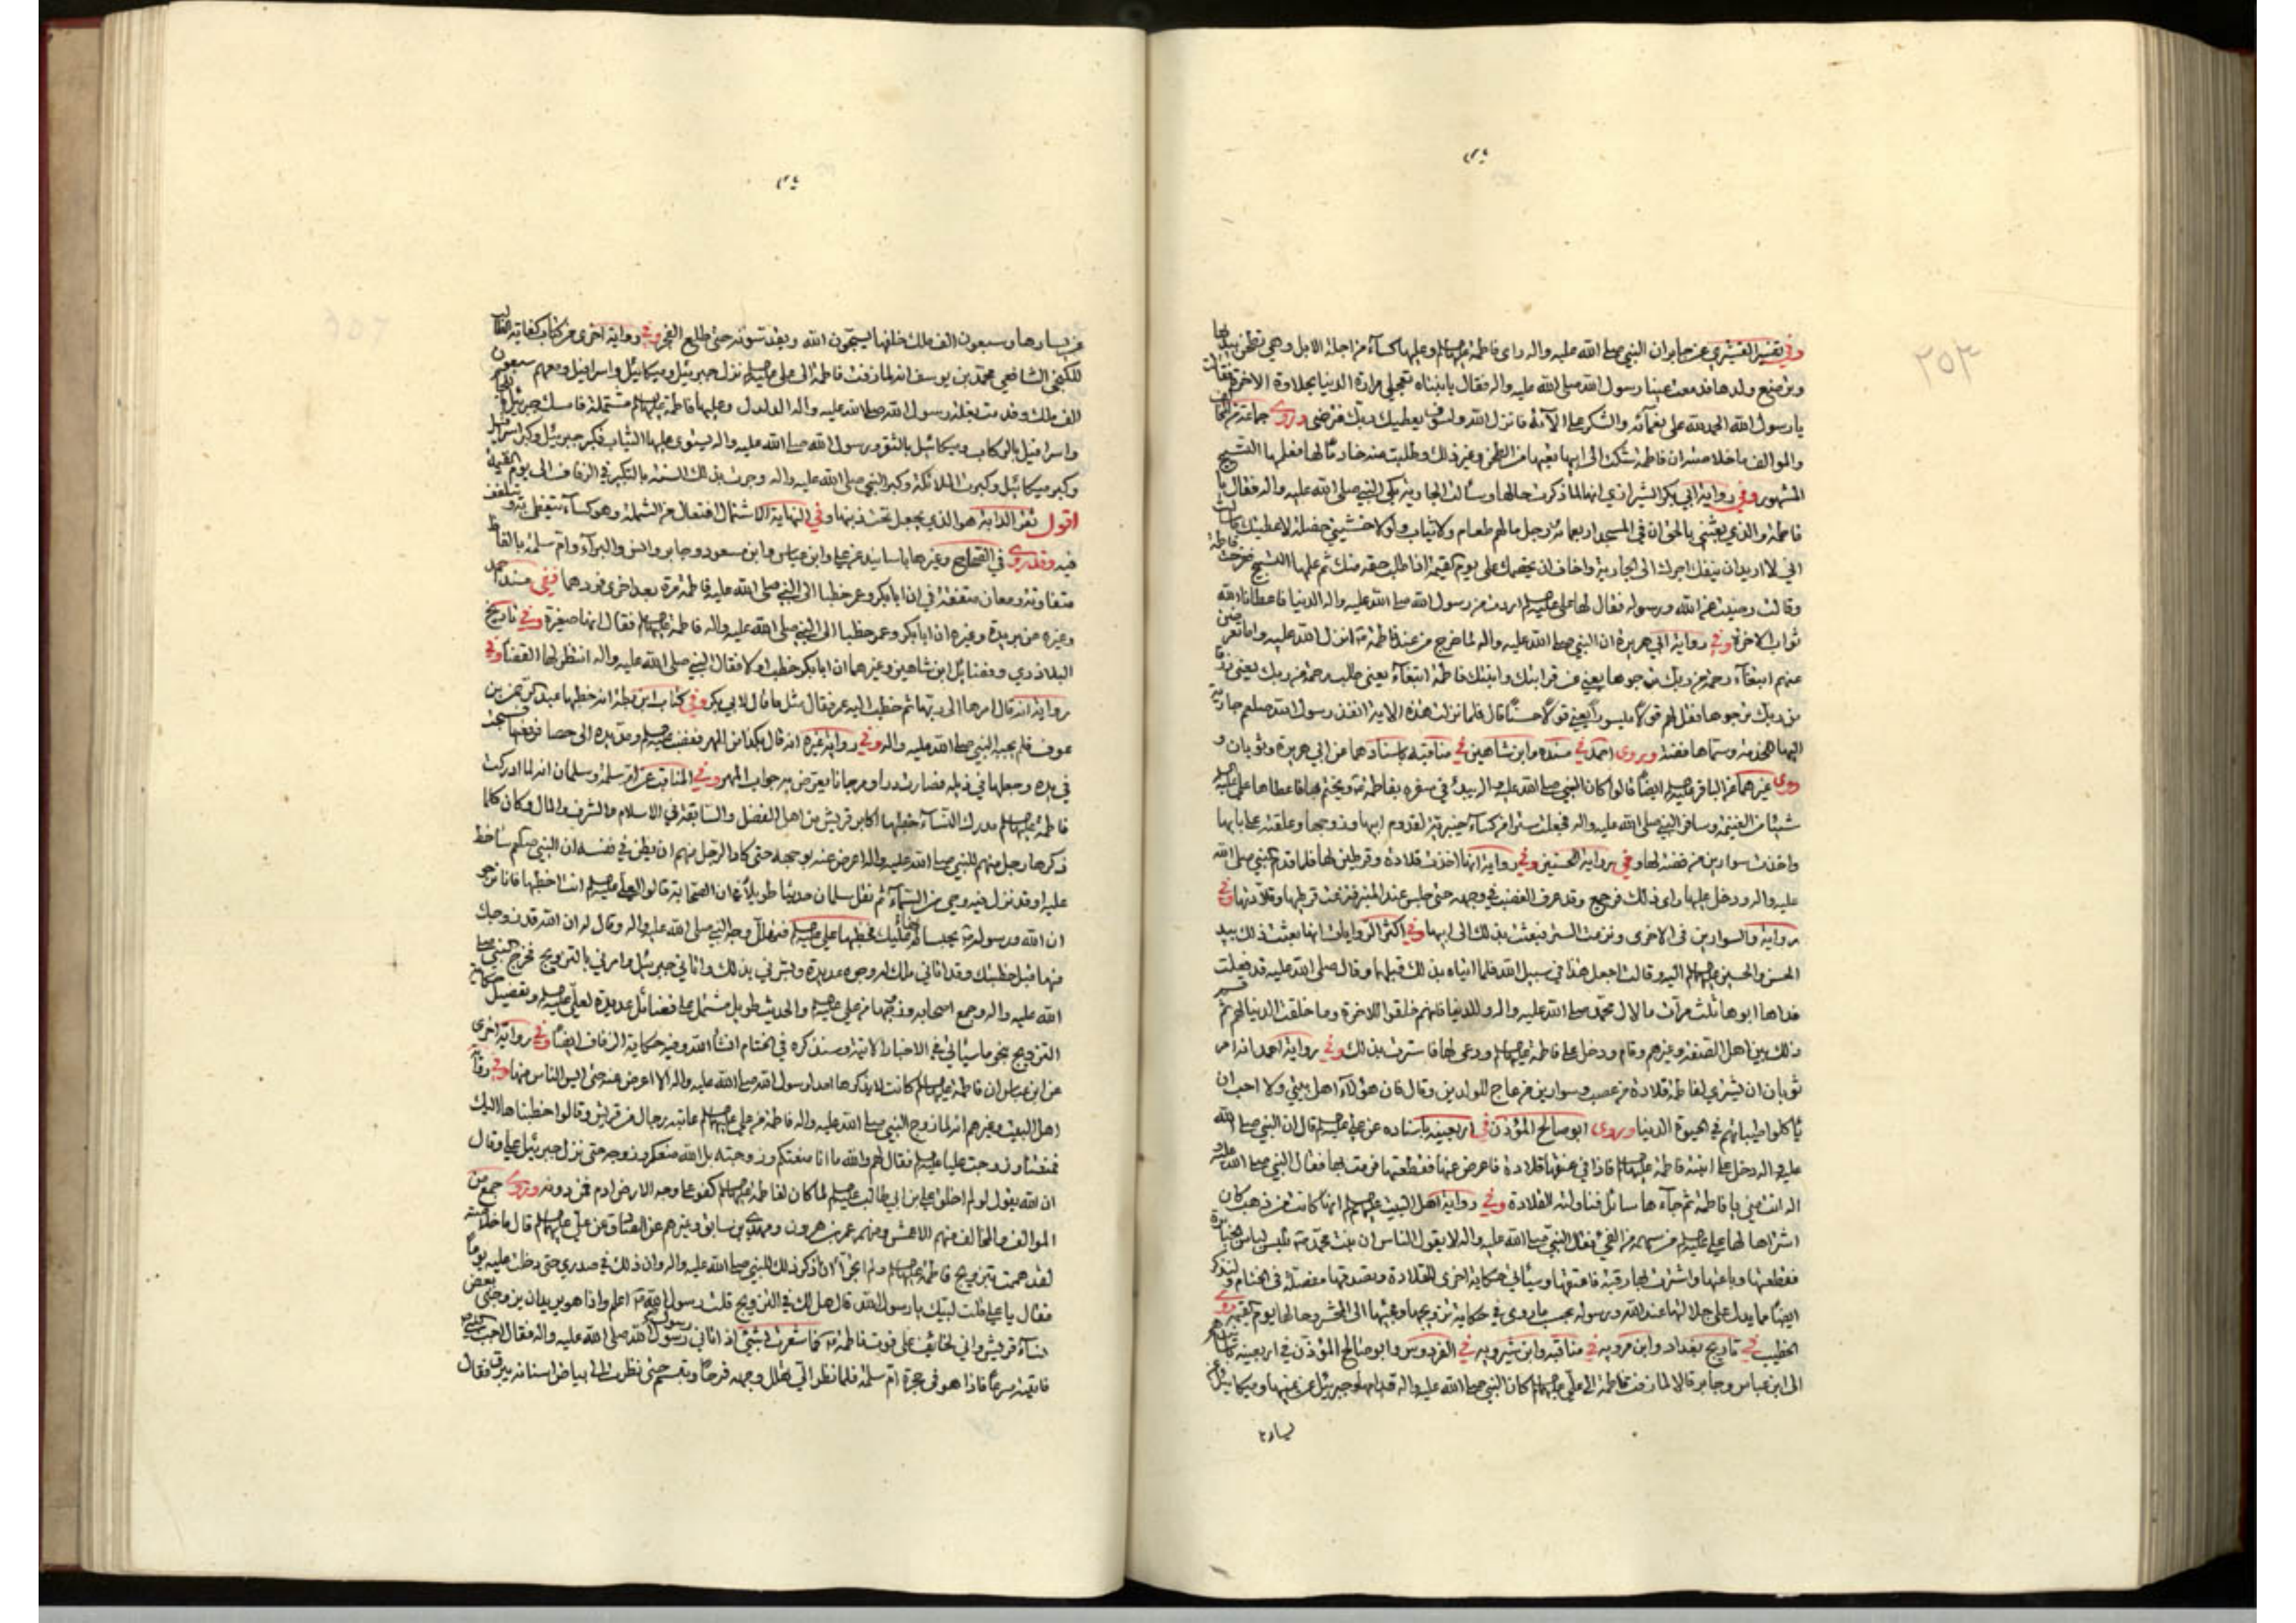 وفي تفسير القشيري عن جابر ان النبي صلى الله عليه واله راى فاطمة عليها السلم وعليها كساء من اجلة الابل وهي تطحن بيديها
وترضع ولدها فدمعت عينا رسول الله صلى الله عليه واله فقال يا بنتاه تعجلي مرارة الدنيا بحلاوة الاخرة فقالت
يا رسول الله الحمد لله على نعمائه والشكر على الآئه فانزل الله ولسوف يعطيك ربك فترضى وروى جماعة من
والموالف ما خلاصته ان فاطمة شكت الى ابيها تعبها من الطحن وغير ذلك وطلبت منه خادما لها فعلمها التسبيح
المشهور وفي رواية ابي بكر الشيرازي انها لما ذكرت حالها وسالت الجارية بكى النبي صلى الله عليه واله فقال يا
فاطمة والذي بعثني بالحق ان في المسجد اربعمائة رجل ما لهم طعام ولا ثياب ولولا خشيتي خصلة لاعطيتك ما سالت
اني لا اريد ان ينفك اجرك الى الجارية واخاف ان يخصمك علي يوم القيمة اذا طلب حقه منك ثم علمها التسبيح فخرجت فاطمة
وقالت رضيت عن الله ورسوله فقال لها علي عليه السلم اردت من رسول الله صلى الله عليه واله الدنيا فاعطانا الله
ثواب الاخرة وفي رواية ابي هريرة ان النبي صلى الله عليه واله لما خرج من عند فاطمة انزل الله عليه واما تعرضن
عنهم ابتغاء رحمة من ربك ترجوها يعني عن قرابتك وابنتك فاطمة ابتغاء يعني طلب رحمة من ربك يعني رزقا
من ربك ترجوها فقل لهم قولا ميسورا يعني قولا حسنا قال فلما نزلت هذه الاية انفذ رسول الله صلعم جارية
اليها للخدمة وسماها فضة وروى احمد في مسنده وابن شاهين في مناقبه باسنادهما عن ابي هريرة وثوبان و
روى غيرهما عن الباقر عليه السلم ايضا قالوا كان النبي صلى الله عليه واله يبدء في سفره بفاطمة ويختم بها فاعطاها علي عليه السلم
شيئا من الغنيمة وسافر النبي صلى الله عليه واله فجعلت سترا من كساء خيبرية لقدوم ابيها وزوجها وعلقته على بابها
واخذت سوارين من فضة لها وفي رواية الحسنين وفي رواية انها اخذت قلادة وقرطين لها فلما قدم النبي صلى الله
عليه واله ودخل عليها راى ذلك فرجع وقد عرف الغضب في وجهه حتى جلس عند المنبر فنزعت قرطيها وقلادتها وفي
رواية والسوارين في الاخرى ونزعت الستر فبعثت بذلك الى ابيها وفي اكثر الروايات انها بعثت ذلك بيد
الحسن والحسين عليهما السلم اليه وقالت اجعل هذا في سبيل الله فلما اتياه بذلك قبلهما وقال صلى الله عليه قد فعلت
فداها ابوها ثلث مرات ما لال محمد صلى الله عليه واله وللدنيا فانهم خلقوا للاخرة وما خلقت الدنيا لهم ثم قسم
ذلك بين اهل الصفة وغيرهم وقام ودخل على فاطمة عليها السلم ودعى لها فاسترت بذلك وفي رواية احمد انه امر
ثوبان ان يشتري لفاطمة قلادة من عصب وسوارين من عاج للولدين وقال فان هؤلاء اهل بيتي ولا احب ان
ياكلوا طيباتهم في الحيوة الدنيا وروى ابو صالح المؤذن في اربعينه باسناده عن علي عليه السلم قال ان النبي صلى الله
عليه واله دخل على ابنته فاطمة عليها السلم فاذا في عنقها قلادة فاعرض عنها فقطعتها فرمت بها فقال النبي صلى الله عليه و
اله انت مني يا فاطمة ثم جاءها سائل فناولته القلادة وفي رواية اهل البيت عليهم السلم انها كانت من ذهب كان
اشتراها لها علي عليه السلم من سهمه من الفيء فقال النبي صلى الله عليه واله لا يقول الناس ان بنت محمد تلبس لباس الجبابرة
فقطعتها وباعتها واشترت بها رقبة فاعتقتها وسياتي حكاية اخرى للقلادة وتصدقها مفصلة في الختام ولنذكر
ايضا ما يدل على جلالتها عند الله ورسوله بحسب ما روي في حكاية تزويجها وغيبتها الى المحشر وحالها يوم القيمة روى
الخطيب في تاريخ بغداد وابن مردويه في مناقبه وابن شيرويه في الفردوس وابو صالح المؤذن في اربعينه باسنادهم
الى ابن عباس وجابر قالا لما زفت فاطمة الى علي عليهما السلم كان النبي صلى الله عليه واله قدامها وجبرئيل عن يمينها وميكائيل عن
يسارها
عن يسارها وسبعون الف ملك خلفها يسبحون الله ويقدسونه حتى طلع الفجر وفي رواية اخرى من كتاب كفاية الطالب
للكنجي الشافعي محمد بن يوسف انه لما زفت فاطمة الى علي عليه السلم نزل جبرئيل وميكائيل واسرافيل ومعهم سبعون
الف ملك وقدمت بغلة رسول الله صلى الله عليه واله الدلدل وعليها فاطمة عليها السلم مشتملة فامسك جبرئيل باللجام
واسرافيل بالركاب وميكائيل بالثفر ورسول الله صلى الله عليه واله يسوي عليها الثياب فكبر جبرئيل وكبر اسرافيل
وكبر ميكائيل وكبرت الملائكة وكبر النبي صلى الله عليه واله وجرت بذلك السنة بالتكبير في الزفاف الى يوم القيمة
اقول ثفر الدابة هو الذي يجعل تحت ذنبها وفي النهاية الاشتمال افتعال من الشملة وهو كساء يتغطى به ويتلفف
فيه وقد روى في الصحاح وغيرها باسانيد عن علي وابن عباس وابن مسعود وجابر وانس والبراء وام سلمة بالفاظ
متفاوتة ومعان متفقة في ان ابا بكر وعمر خطبا الى النبي صلى الله عليه فاطمة مرة بعد اخرى فردهما ففي مسند احمد
وغيره عن بريدة وغيره ان ابا بكر وعمر خطبا الى النبي صلى الله عليه واله فاطمة عليها السلم فقال انها صغيرة وفي تاريخ
البلاذري وفضائل ابن شاهين وغيرهما ان ابا بكر خطب اولا فقال النبي صلى الله عليه واله انتظر لها القضاء وفي
رواية انه قال امرها الى ربها ثم خطب اليه عمر فقال مثل ما قال لابي بكر وفي كتاب ابن بطة انه خطبها عبد الرحمن بن
عوف فلم يجبه النبي صلى الله عليه واله وفي رواية غيره انه قال بكذا من المهر فغضب عليه السلم ومد يده الى حصا فرفعها فسبحت
في يده وجعلها في ذيله فصارت درا ومرجانا يعرض به جواب المهر وفي المناقب عن ام سلمة وسلمان انه لما ادركت
فاطمة عليها السلم مدرك النساء خطبها اكابر قريش من اهل الفضل والسابقة في الاسلام والشرف والمال وكان كلما
ذكرها رجل منهم للنبي صلى الله عليه واله اعرض عنه بوجهه حتى كاد الرجل منهم ان يظن في نفسه ان النبي صلعم ساخط
عليه او قد نزل فيه وحي من السماء ثم نقل سلمان حديثا طويلا في ان الصحابة قالوا لعلي عليه السلم انت اخطبها فانا نرجو
ان الله ورسوله يحبسانها عليك فخطبها علي عليه السلم فتهلل وجه النبي صلى الله عليه واله وقال له ان الله قد زوجك
منها قبل خطبتك وقد اتاني ملك له وجوه عديدة وبشرني بذلك واتاني جبرئيل وامرني بالتزويج فخرج النبي صلى
الله عليه واله وجمع اصحابه وزوجها من علي عليه السلم والحديث طويل مشتمل على فضائل عديدة لعلي عليه السلم وتفضيل حكاية
التزويج بنحو ما سياتي في الاخبار الاتية وسنذكره في الختام انشاء الله وفيه حكاية الزفاف ايضا وفي رواية اخرى
عن ابن عباس ان فاطمة عليها السلم كانت لا يذكرها احد لرسول الله صلى الله عليه واله الا اعرض عنه حتى ايس الناس منها وفي رواية
اهل البيت وغيرهم انه لما زوج النبي صلى الله عليه واله فاطمة من علي عليهما السلم عاتبه رجال من قريش وقالوا خطبناها اليك
فمنعتنا وزوجت عليا عليه السلم فقال لهم والله ما انا منعتكم وزوجته بل الله منعكم وزوجه حتى نزل جبرئيل علي وقال
ان الله يقول لو لم اخلق علي بن ابي طالب عليه السلم لما كان لفاطمة عليها السلم كفو على وجه الارض ادم فمن دونه وروى جمع من
الموالف والمخالف منهم الاعمش ومنهم عمر بن هرون ومهدي بن سابق وغيرهم عن الصادق عن علي عليهما السلم قال ما خلاصته
لقد هممت بتزويج فاطمة عليها السلم ولم اتجرأ ان اذكر ذلك للنبي صلى الله عليه واله وان ذلك في صدري حتى دخلت عليه يوما
فقال يا علي قلت لبيك يا رسول الله قال هل لك في التزويج قلت رسول الله اعلم واذا هو يريد ان يزوجني بعض
نساء قريش واني لخائف على فوت فاطمة فما شعرت بشيء اذ اتاني رسول رسول الله صلى الله عليه واله فقال اجب النبي
فاتيته مسرعا فاذا هو في حجرة ام سلمة فلما نظر الي تهلل وجهه فرحا وتبسم حتى نظرت الى بياض اسنانه يبرق فقال